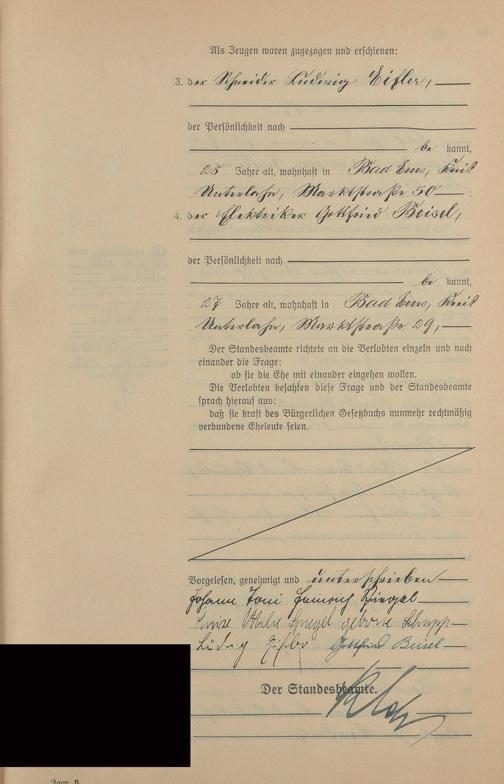 Als Zeugen waren zugezogen und erschienen:
3. der Schneider Ludwig Eifler,
der Persönlichkeit nach
be kannt,
25 Jahre alt, wohnhaft in Bad Ems, Kreis
Unterlahn, Marktstraße 50
4. der Elektriker Gottfried Beisel,
der Persönlichkeit nach
be kannt,
27 Jahre alt, wohnhaft in Bad Ems, Kreis
Unterlahn, Marktstraße 29,
Der Standesbeamte richtete an die Verlobten einzeln und nach
einander die Frage:
ob sie die Ehe mit einander eingehen wollen.
Die Verlobten bejahten diese Frage und der Standesbeamte
sprach hierauf aus:
daß sie kraft des Bürgerlichen Gesetzbuchs nunmehr rechtmäßig
verbundene Eheleute seien.
Vorgelesen, genehmigt und unterschrieben
Johann Toni Heinrich
geborene
Ludwig Eifler Gottfried Beisel
Der Standesbeamte.